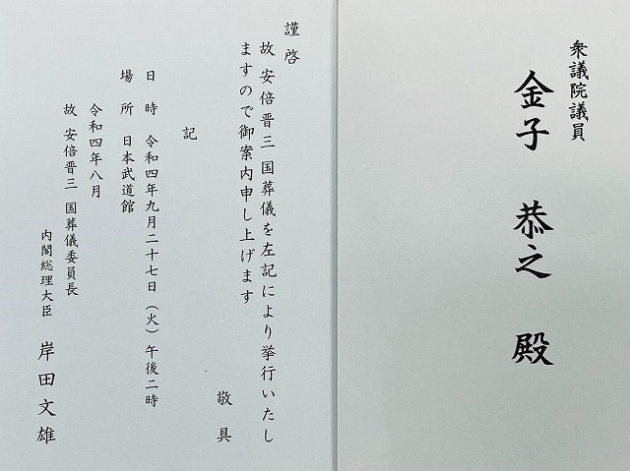 衆議院議員
金子 恭之 殿
謹啓
故 安倍晋三 国葬儀を左記により挙行いたし
ますので御案内申し上げます
敬具
記
日時 令和四年九月二十七日(火)午後二時
場所 日本武道館
令和四年八月
故 安倍晋三 国葬儀委員長
内閣総理大臣 岸田文雄